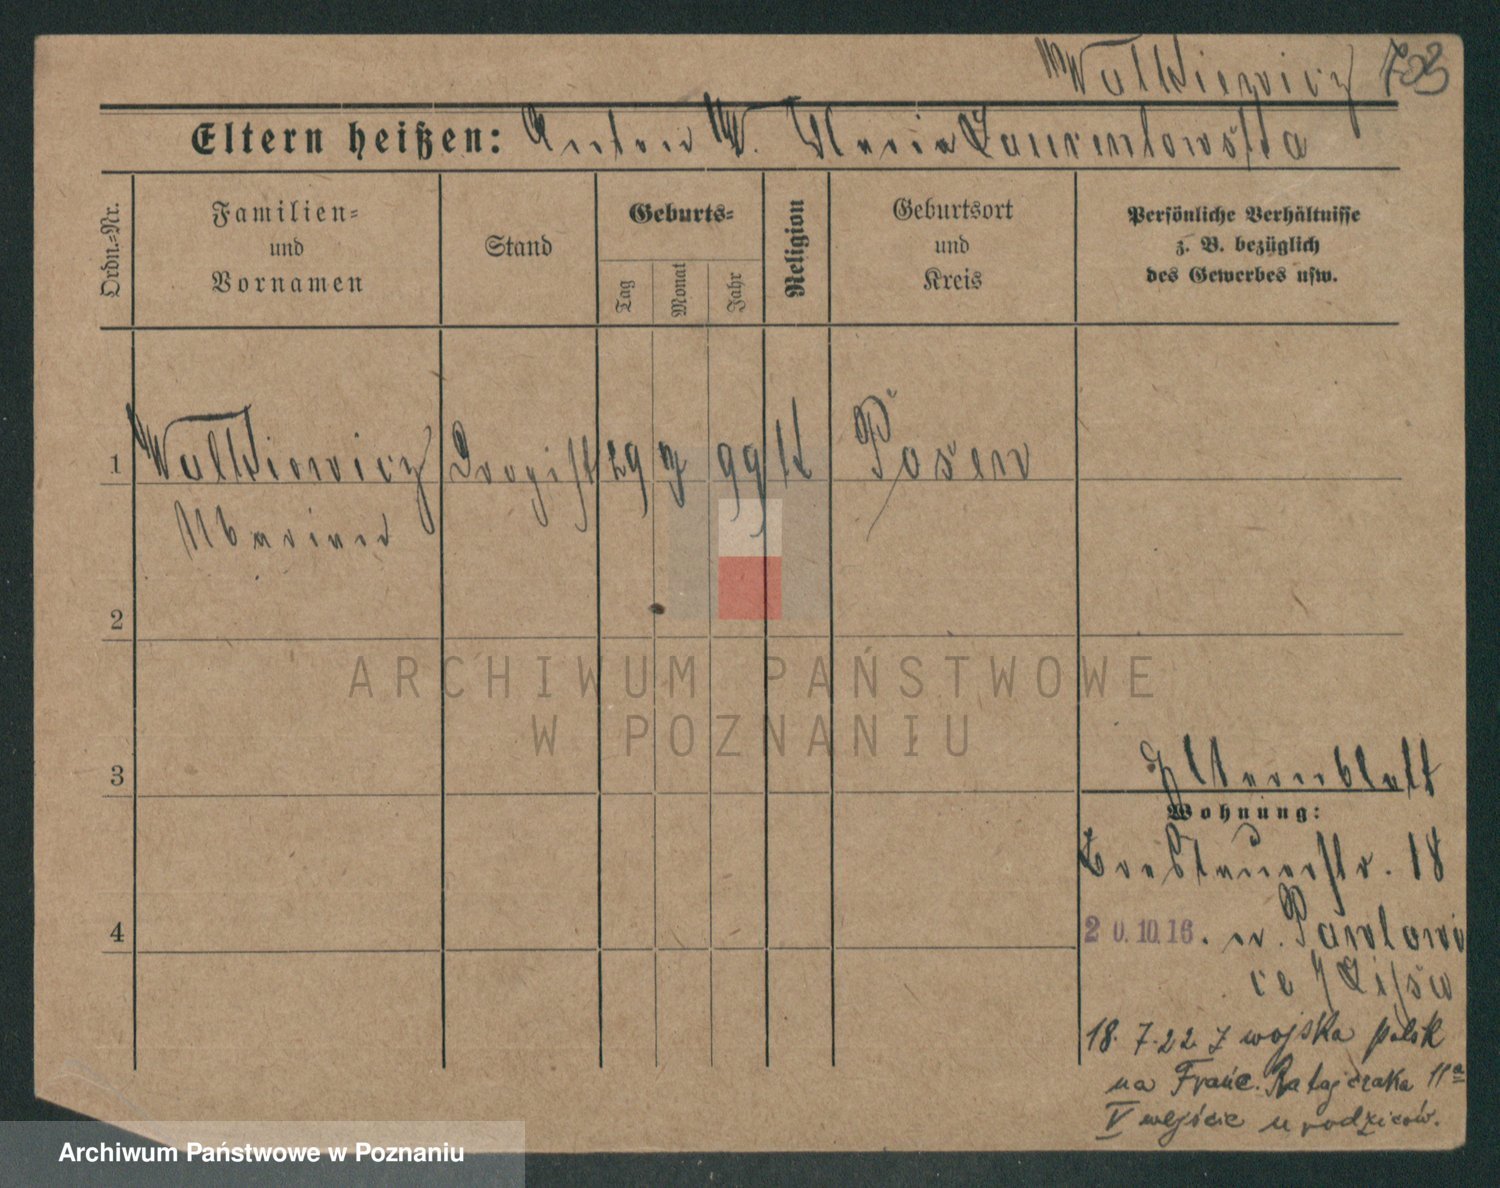 Walkiewicz 703
Eltern heißen: Anton W. Maria Laurentowska
Ordn.=Nr.
Familien=
und
Vornamen
Stand
Geburts=
Tag
Monat
Jahr
Religion
Geburtsort
und
Kreis
Persönliche Verhältnisse
z. B. bezüglich
des Gewerbes usw.
1 Walkiewicz Drogist 29 7 99 K Posen
Marian
2
ARCHIWUM PAŃSTWOWE
W POZNANIU
3
Elternblatt
Wohnung:
Breslauerstr. 18
4
20.10.16. n. Pawlowi
ce / Lissa
18. 7. 22 z wojska polsk
na Franc. Ratajczaka 11a
V wejście u rodziców.
Archiwum Państwowe w Poznaniu